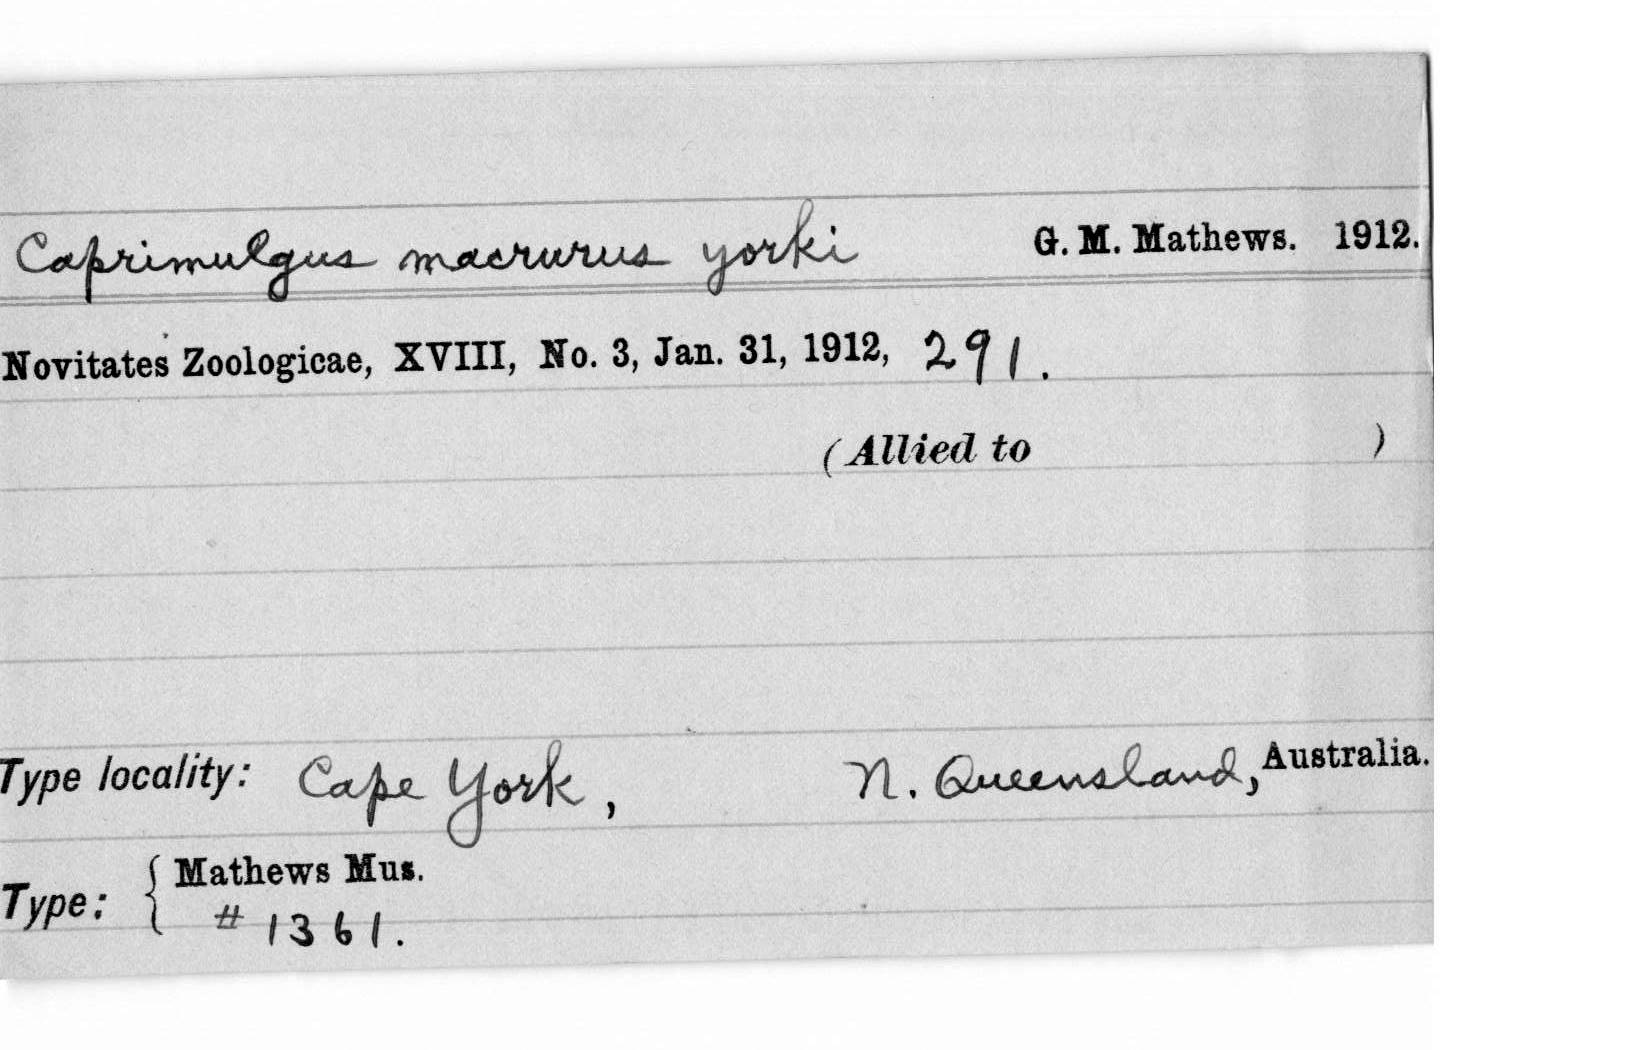 Caprimulgus macrurus yorki G. M. Mathews. 1912.
Novitates Zoologicae, XVIII, No. 3, Jan. 31, 1912, 291.
(Allied to )
Type locality: Cape York, N. Queensland, Australia.
Type: { Mathews Mus.
# 1361.